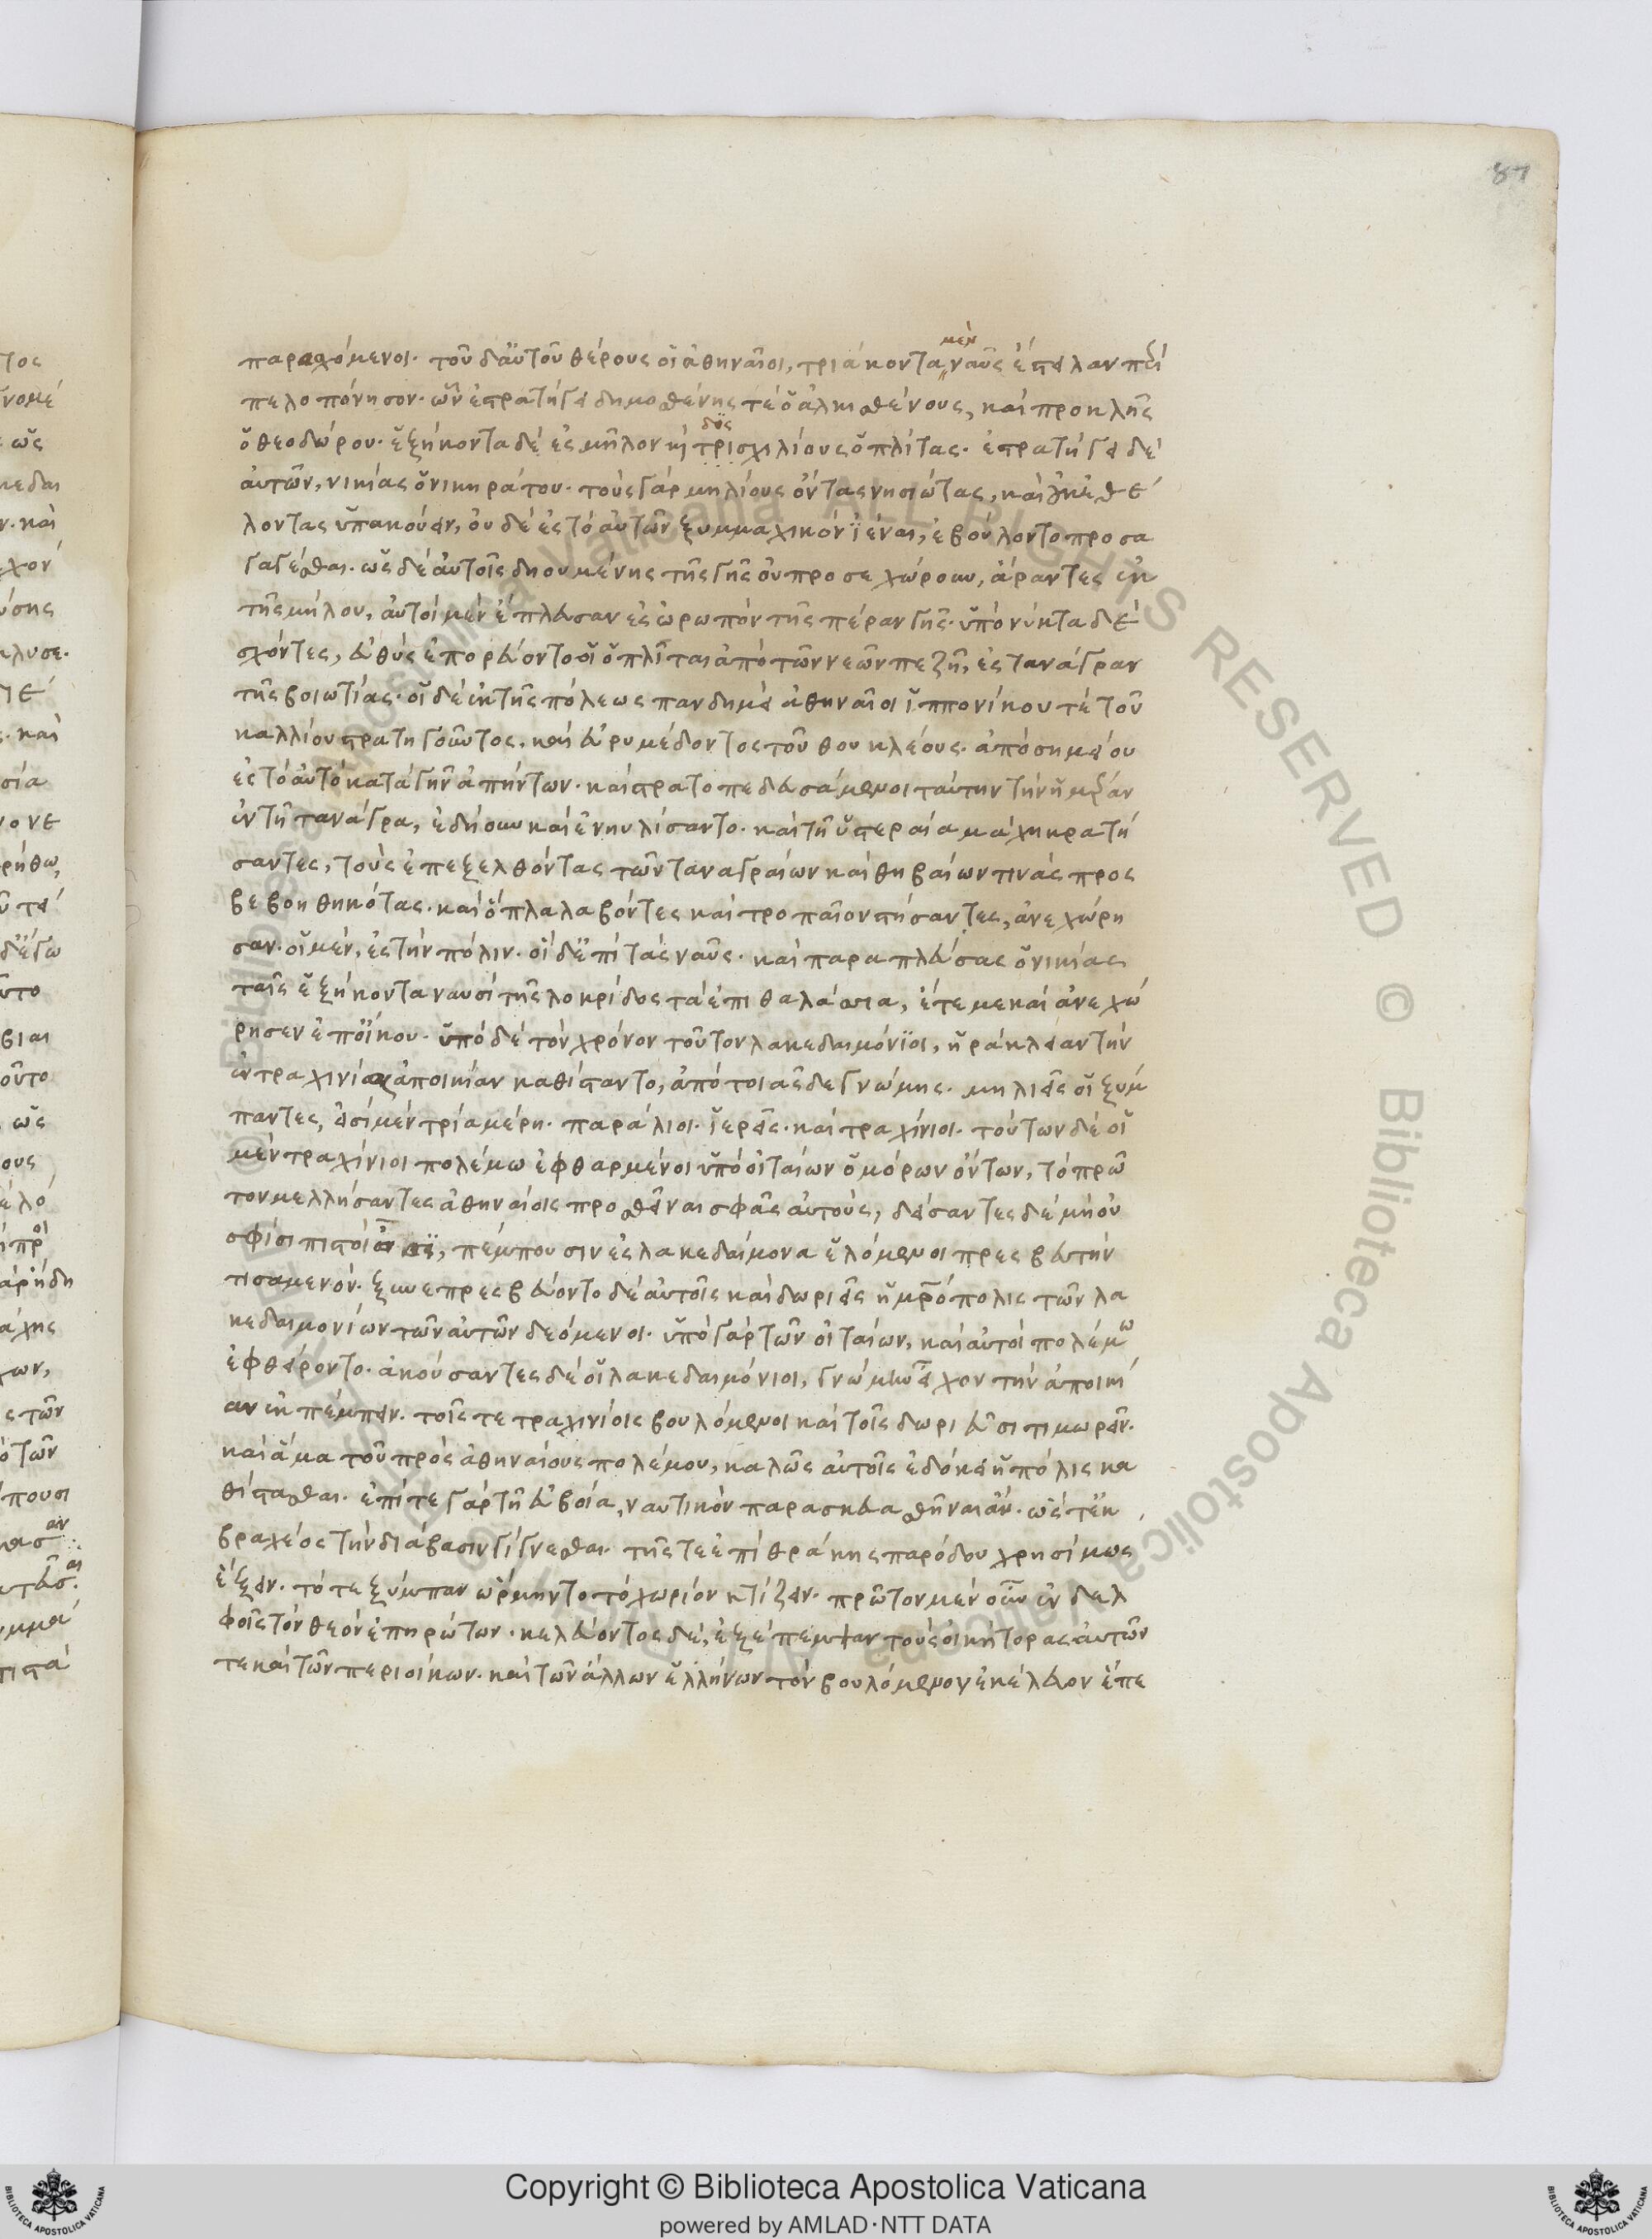 87
παρασχόμενοι. τοῦ δ' αὐτοῦ θέρους οἱ ἀθηναῖοι, τριάκοντα μὲν ναῦς ἔστειλαν περὶ
πελοπόνησον. ὧν ἐστρατήγει δημοσθένης τὲ ὁ ἀλκισθένους, καὶ προκλῆς
ὁ θεοδώρου. ἑξήκοντα δὲ ἐς μῆλον καὶ τρισχιλίους ὁπλίτας. ἐστρατήγει δὲ
αὐτῶν, νικίας ὁ νικηράτου. τοὺς γὰρ μηλίους ὄντας νησιώτας, καὶ οὐκ ἐθέ
λοντας ὑπακούειν, οὐδὲ ἐς τὸ αὐτῶν ξυμμαχικὸν ἰέναι, ἐβούλοντο προσα
γαγέσθαι. ὡς δὲ αὐτοῖς δηουμένης τῆς γῆς οὐ προσεχώρουν, ἄραντες ἐκ
τῆς μήλου, αὐτοὶ μὲν ἔπλευσαν ἐς ὠρωπὸν τῆς πέραν γῆς. ὑπὸ νύκτα δὲ
σχόντες, εὐθὺς ἐπορεύοντο οἱ ὁπλῖται ἀπὸ τῶν νεῶν πεζῆ, ἐς τανάγραν
τῆς βοιωτίας. οἱ δὲ ἐκ τῆς πόλεως πανδημεὶ ἀθηναῖοι ἱππονίκου τὲ τοῦ
καλλίου στρατηγοῦντος, καὶ εὐρυμέδοντος τοῦ θουκλέους. ἀπὸ σημείου
ἐς τὸ αὐτὸ κατὰ γῆν ἀπήντων. καὶ στρατοπεδευσάμενοι ταύτην τὴν ἡμέραν
ἐν τῆ τανάγρα, ἐδήουν καὶ ἐνηυλίσαντο. καὶ τῆ ὑστεραία μάχη κρατή
σαντες, τοὺς ἐπεξελθόντας τῶν ταναγραίων καὶ θηβαίων τινὰς προσ
βεβοηθηκότας. καὶ ὅπλα λαβόντες καὶ τροπαῖον στήσαντες, ἀνεχώρη
σαν. οἱ μὲν, ἐς τὴν πόλιν. οἱ δ' ἐπὶ τὰς ναῦς. καὶ παραπλεύσας ὁ νικίας
ταῖς ἑξήκοντα ναυσὶ τῆς λοκρίδος τὰ ἐπιθαλάσσια, ἔτεμε καὶ ἀνεχώ
ρησεν ἐπ' οἴκου. ὑπὸ δὲ τὸν χρόνον τοῦτον λακεδαιμόνιοι, ἡράκλειαν τὴν
ἐν τραχινίαις ἀποικίαν καθίσταντο, ἀπὸ τοιᾶσδε γνώμης. μηλιεῖς οἱ ξύμ
παντες, εἰσὶ μὲν τρία μέρη. παράλιοι. ἱερεῖς. καὶ τραχίνιοι. τούτων δὲ οἱ
μὲν τραχίνιοι πολέμω ἐφθαρμένοι ὑπὸ οἰταίων ὁμόρων ὄντων, τὸ πρῶ
τον μελλήσαντες ἀθηναίοις προσθεῖναι σφᾶς αὐτοὺς, δείσαντες δὲ μὴ οὐ
σφίσι πιστοὶ, πέμπουσιν ἐς λακεδαίμονα ἑλόμενοι πρεσβευτὴν
τισαμενόν. ξυνεπρεσβεύοντο δὲ αὐτοῖς καὶ δωριεῖς ἡ μητρόπολις τῶν λα
κεδαιμονίων τῶν αὐτῶν δεόμενοι. ὑπὸ γὰρ τῶν οἰταίων, καὶ αὐτοὶ πολέμω
ἐφθείροντο. ἀκούσαντες δὲ οἱ λακεδαιμόνιοι, γνώμην εἶχον τὴν ἀποικί
αν ἐκπέμπειν. τοῖς τε τραχινίοις βουλόμενοι καὶ τοῖς δωριεῦσι τιμωρεῖν.
καὶ ἅμα τοῦ πρὸς ἀθηναίους πολέμου, καλῶς αὐτοῖς ἐδόκει ἡ πόλις κα
θίστασθαι. ἐπί τε γὰρ τῆ εὐβοία, ναυτικὸν παρασκευασθῆναι ἂν. ὥστ' ἐκ
βραχέος τὴν διάβασιν γίγνεσθαι. τῆς τε ἐπὶ θράκης παρόδου χρησίμως
ἕξειν. τό τε ξύμπαν ὥρμηντο τὸ χωρίον κτίζειν. πρῶτον μὲν οὖν ἐν δελ
φοῖς τὸν θεὸν ἐπηρώτων. κελεύοντος δὲ, ἐξέπεμψαν τοὺς οἰκήτορας αὐτῶν
τε καὶ τῶν περιοίκων. καὶ τῶν ἄλλων ἑλλήνων τὸν βουλόμενον ἐκέλευον ἕπε
Copyright © Biblioteca Apostolica Vaticana
powered by AMLAD·NTT DATA